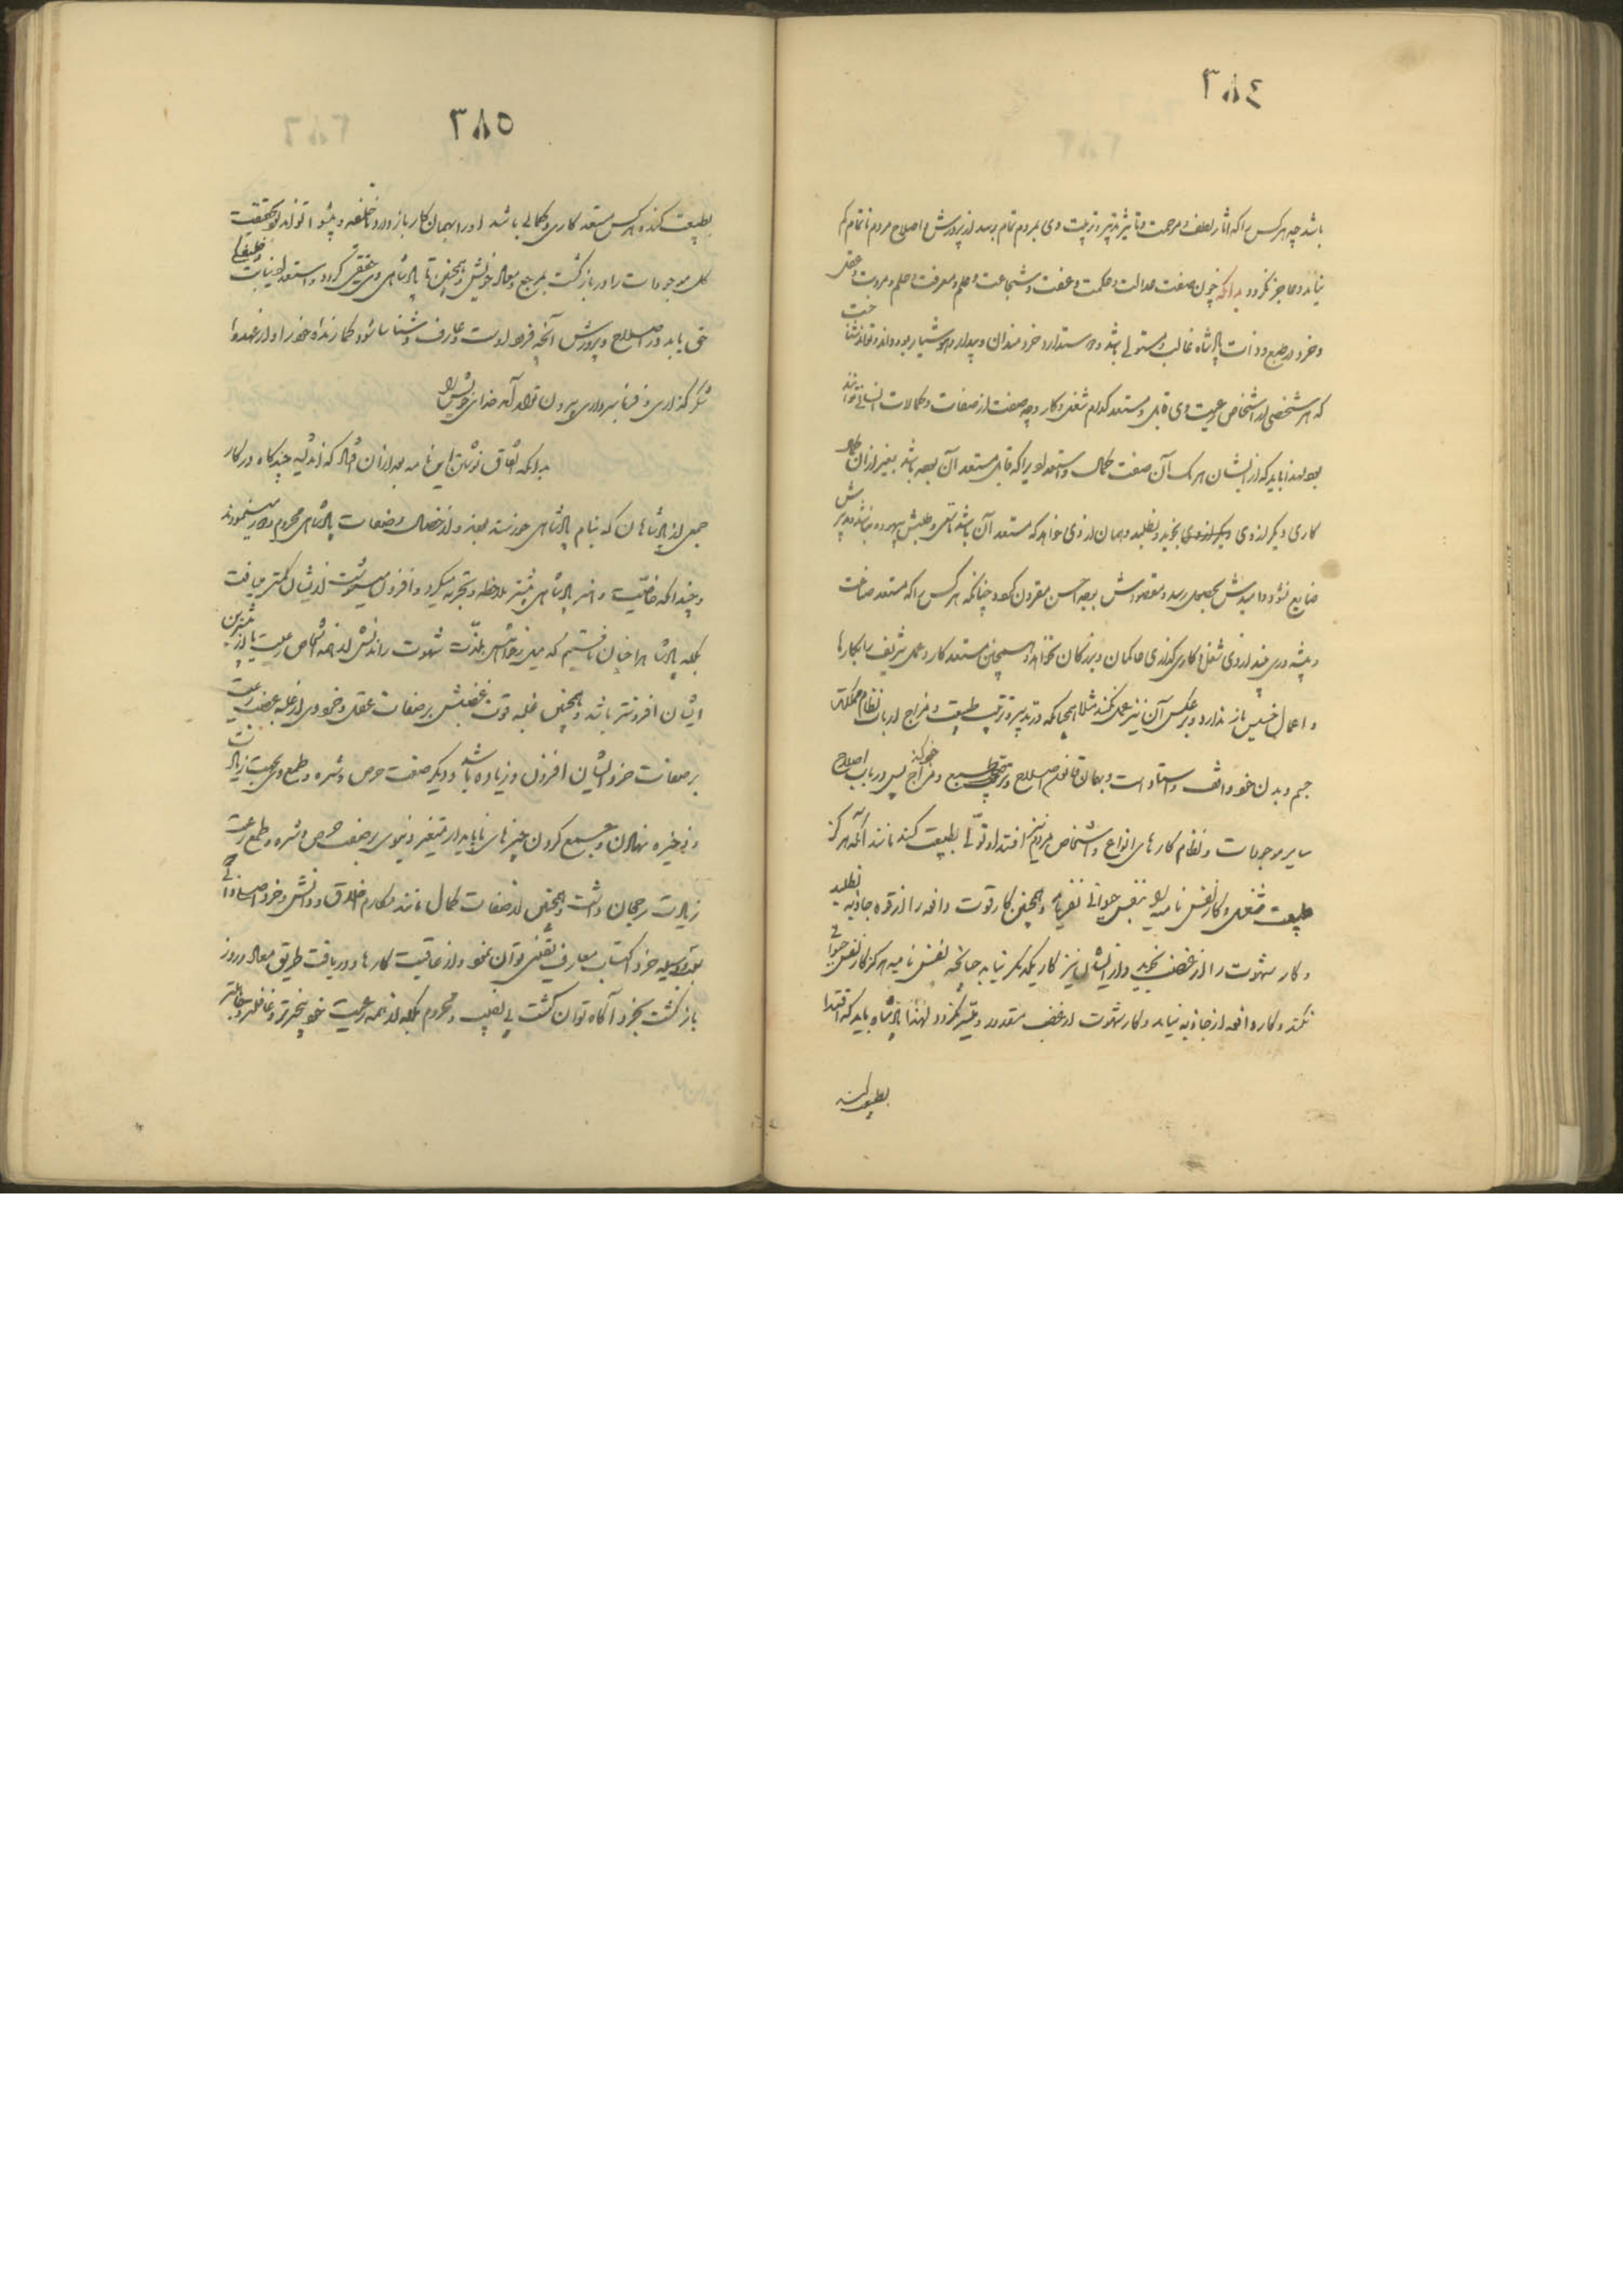 ٣٨٤
باشد چه هر کس را که اثار لطف و مرحمت و تاثیر تدبیر و تربیت وی بمردم تمام برسد از پرورش و اصلاح مردم ناتمام کم
نیاید و عاجز نگردد بدانکه چون صفت عدالت و حکمت و عفت و شجاعت و علم و معرفت و حلم و مروت و عقل
و خرد در طبع و ذات پادشاه غالب و مستولی باشد و دوستدار خردمندان و بیدار و هوشیار بود و داند و تواند شناخت
که هر شخصی از اشخاص رعیت وی قابل و مستعد کدام شغل و کار و چه صفت از صفات و کمالات انسانی تواند
بود لهذا باید که از ایشان هر یک آن صفت کمال و استعداد ویرا که قابل و مستعد آن بود باشد بغیر از آن کار
کاری دیگر از وی نجوید و نطلبد و همان از وی خواهد که مستعد آن باشد تا سعی و طلبش بیهوده نباشد و پرورش
ضایع نشود و امیدش بحصول رسد و مقصودش بوجه احسن مقرون گردد چنانکه هر کس را که مستعد صناعت
و پیشه وری بیند از وی شغل و کارگذاری حاکمان و بزرگان نخواهد و همچنین مستعد کار و عمل شریف را بکارها
و اعمال خسیس باز ندارد و بر عکس آن نیز عمل نکند مثلا همچنانکه در تدبیر و ترتیب طبیعت و مزاج از باب نظام مملکت
جسم و بدن خود واقف و استاد است و بهمان قانون اصلاح طبع و مزاج خود کند پس در باب اصلاح
سایر موجودات و نظام کارهای انواع و اشخاص مردم نیز اقتدا و تولّا بطبیعت کند مانند آنکه هرگز
طبیعت شغل و کار نفس نامیه را بنفس حیوانی نفرماید و همچنین کار قوت دافعه را از قوه جاذبه نطلبد
و کار شهوت را از غضب نجوید و از ایشان نیز کار یکدیگر نیاید چنانچه نفس نامیه هرگز کار نفس حیوانی
نکند و کار دافعه از جاذبه نیاید و کار شهوت از غضب مقدور و میسر نگردد لهذا پادشاه باید که اقتدا
بطبیعت کند
٣٨٥
بطبیعت کند هر کس مستعد کاری و کمالی باشد او را بهمان کار باز دارد تا خلیفه و پیشوا تواند بود بحقیقت
کل موجودات را در بازگشت بمرجع و معاد خویش و همچنین تا پادشاهی وی حقیقی گردد و استعداد نیابت و خلیفگی
حق یابد و در اصلاح و پرورش آنچه فرود اوست عارف و شناسا شود کارنده خود را و از عهدهٔ
شکر گذاری و فرمانبرداری بیرون تواند آمد خدای خویش را
بدانکه اتفاق نوشتن این نامه بعد از آن افتاد که اندیشه چندگاه در کار
جمعی از پادشاهان که بنام پادشاهی خورسند بودند و از خصال و صفات پادشاهی محروم و دور مینمودند
و چندانکه خاصیت و اثر پادشاهی بیشتر ملاحظه و تجربه میکرد و افزون میجست از ایشان کمتر مییافت
بلکه پادشاه را چنان یافتیم که میل و خواهش بلذت شهوت راندنش از همه اشخاص رعیت یا از بیشترین
ایشان افزونتر باشد و همچنین غلبه قوت غضبش بر صفات عقل و خرد وی از غلبه غضب رعیت
بر صفات خرد ایشان افزون و زیاده باشد و دیگر صفت حرص و شره و طمع وی بجهت زیادت
و ذخیره نهادن و جمع کردن چیزهای ناپایدار متغیر دنیوی بر صفت حرص و شره و طمع رعیت
زیادت رجحان داشت و همچنین از صفات کمال مانند مکارم اخلاق و دانش و خرد اصلی و ذاتی که
بوسیله خرد اکتساب معارف یقینی توان نمود و از عاقبت کارها و دریافت طریق معاد و روز
بازگشت بخرد آگاه توان گشت بی نصیب و محروم بلکه از همه رعیت خود بیخبرتر و غافلتر و جاهلتر